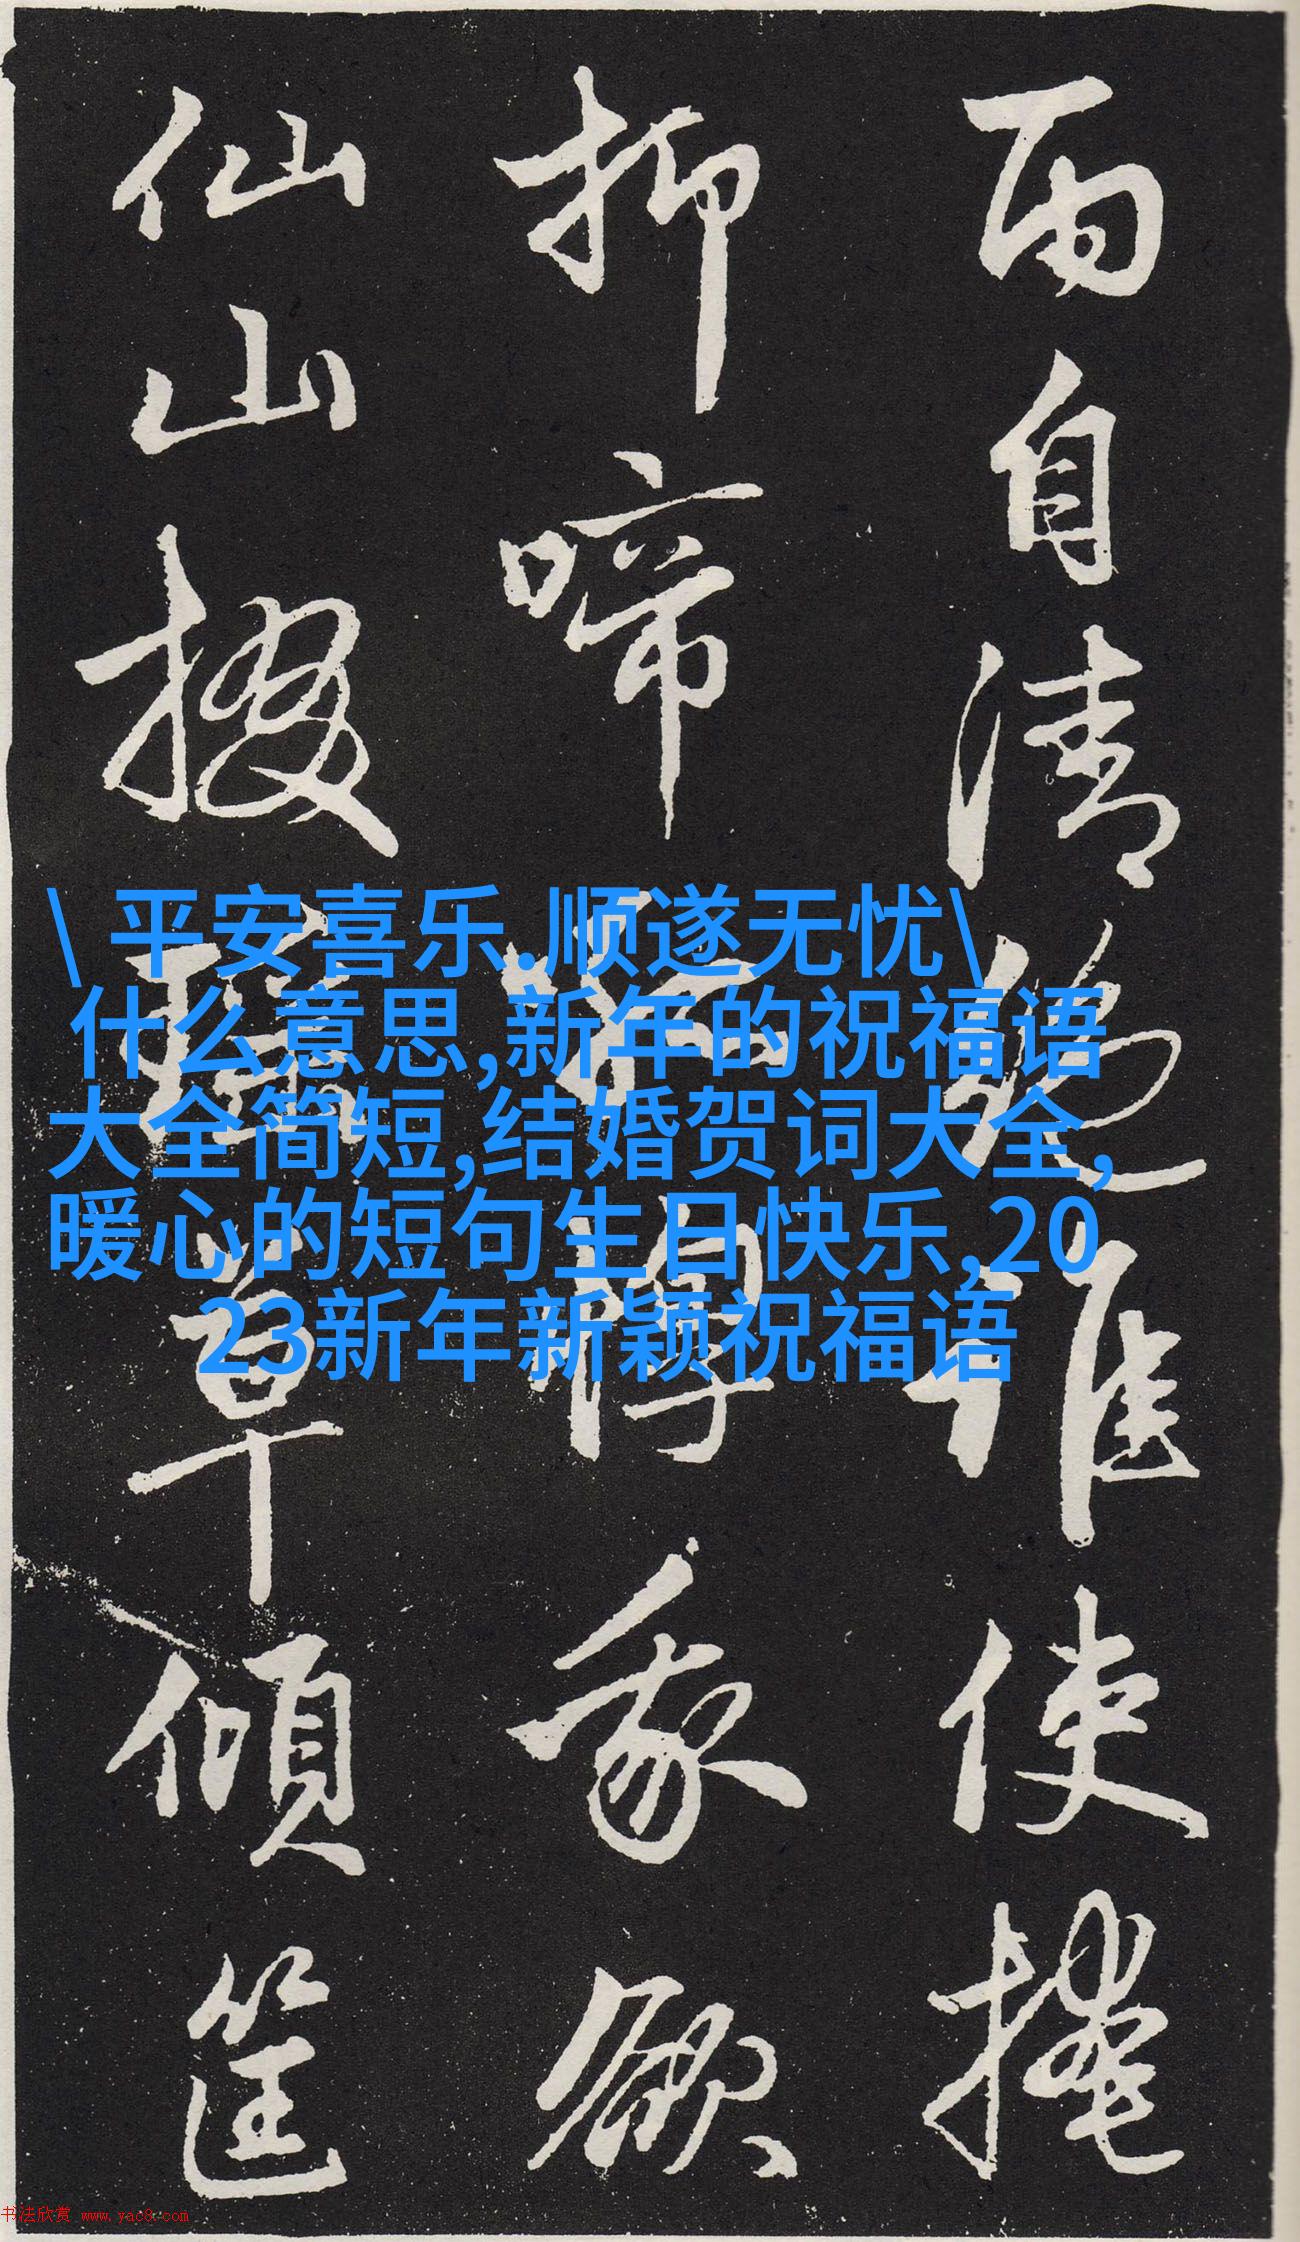 自清絶誰使掩
抑啼我欲
仙山掇瑶草傾筐
\ 平安喜乐.顺遂无忧\
什么意思,新年的祝福语
大全简短,结婚贺词大全,
暖心的短句生日快乐,20
23新年新颖祝福语
书法欣赏 www.yac8.com